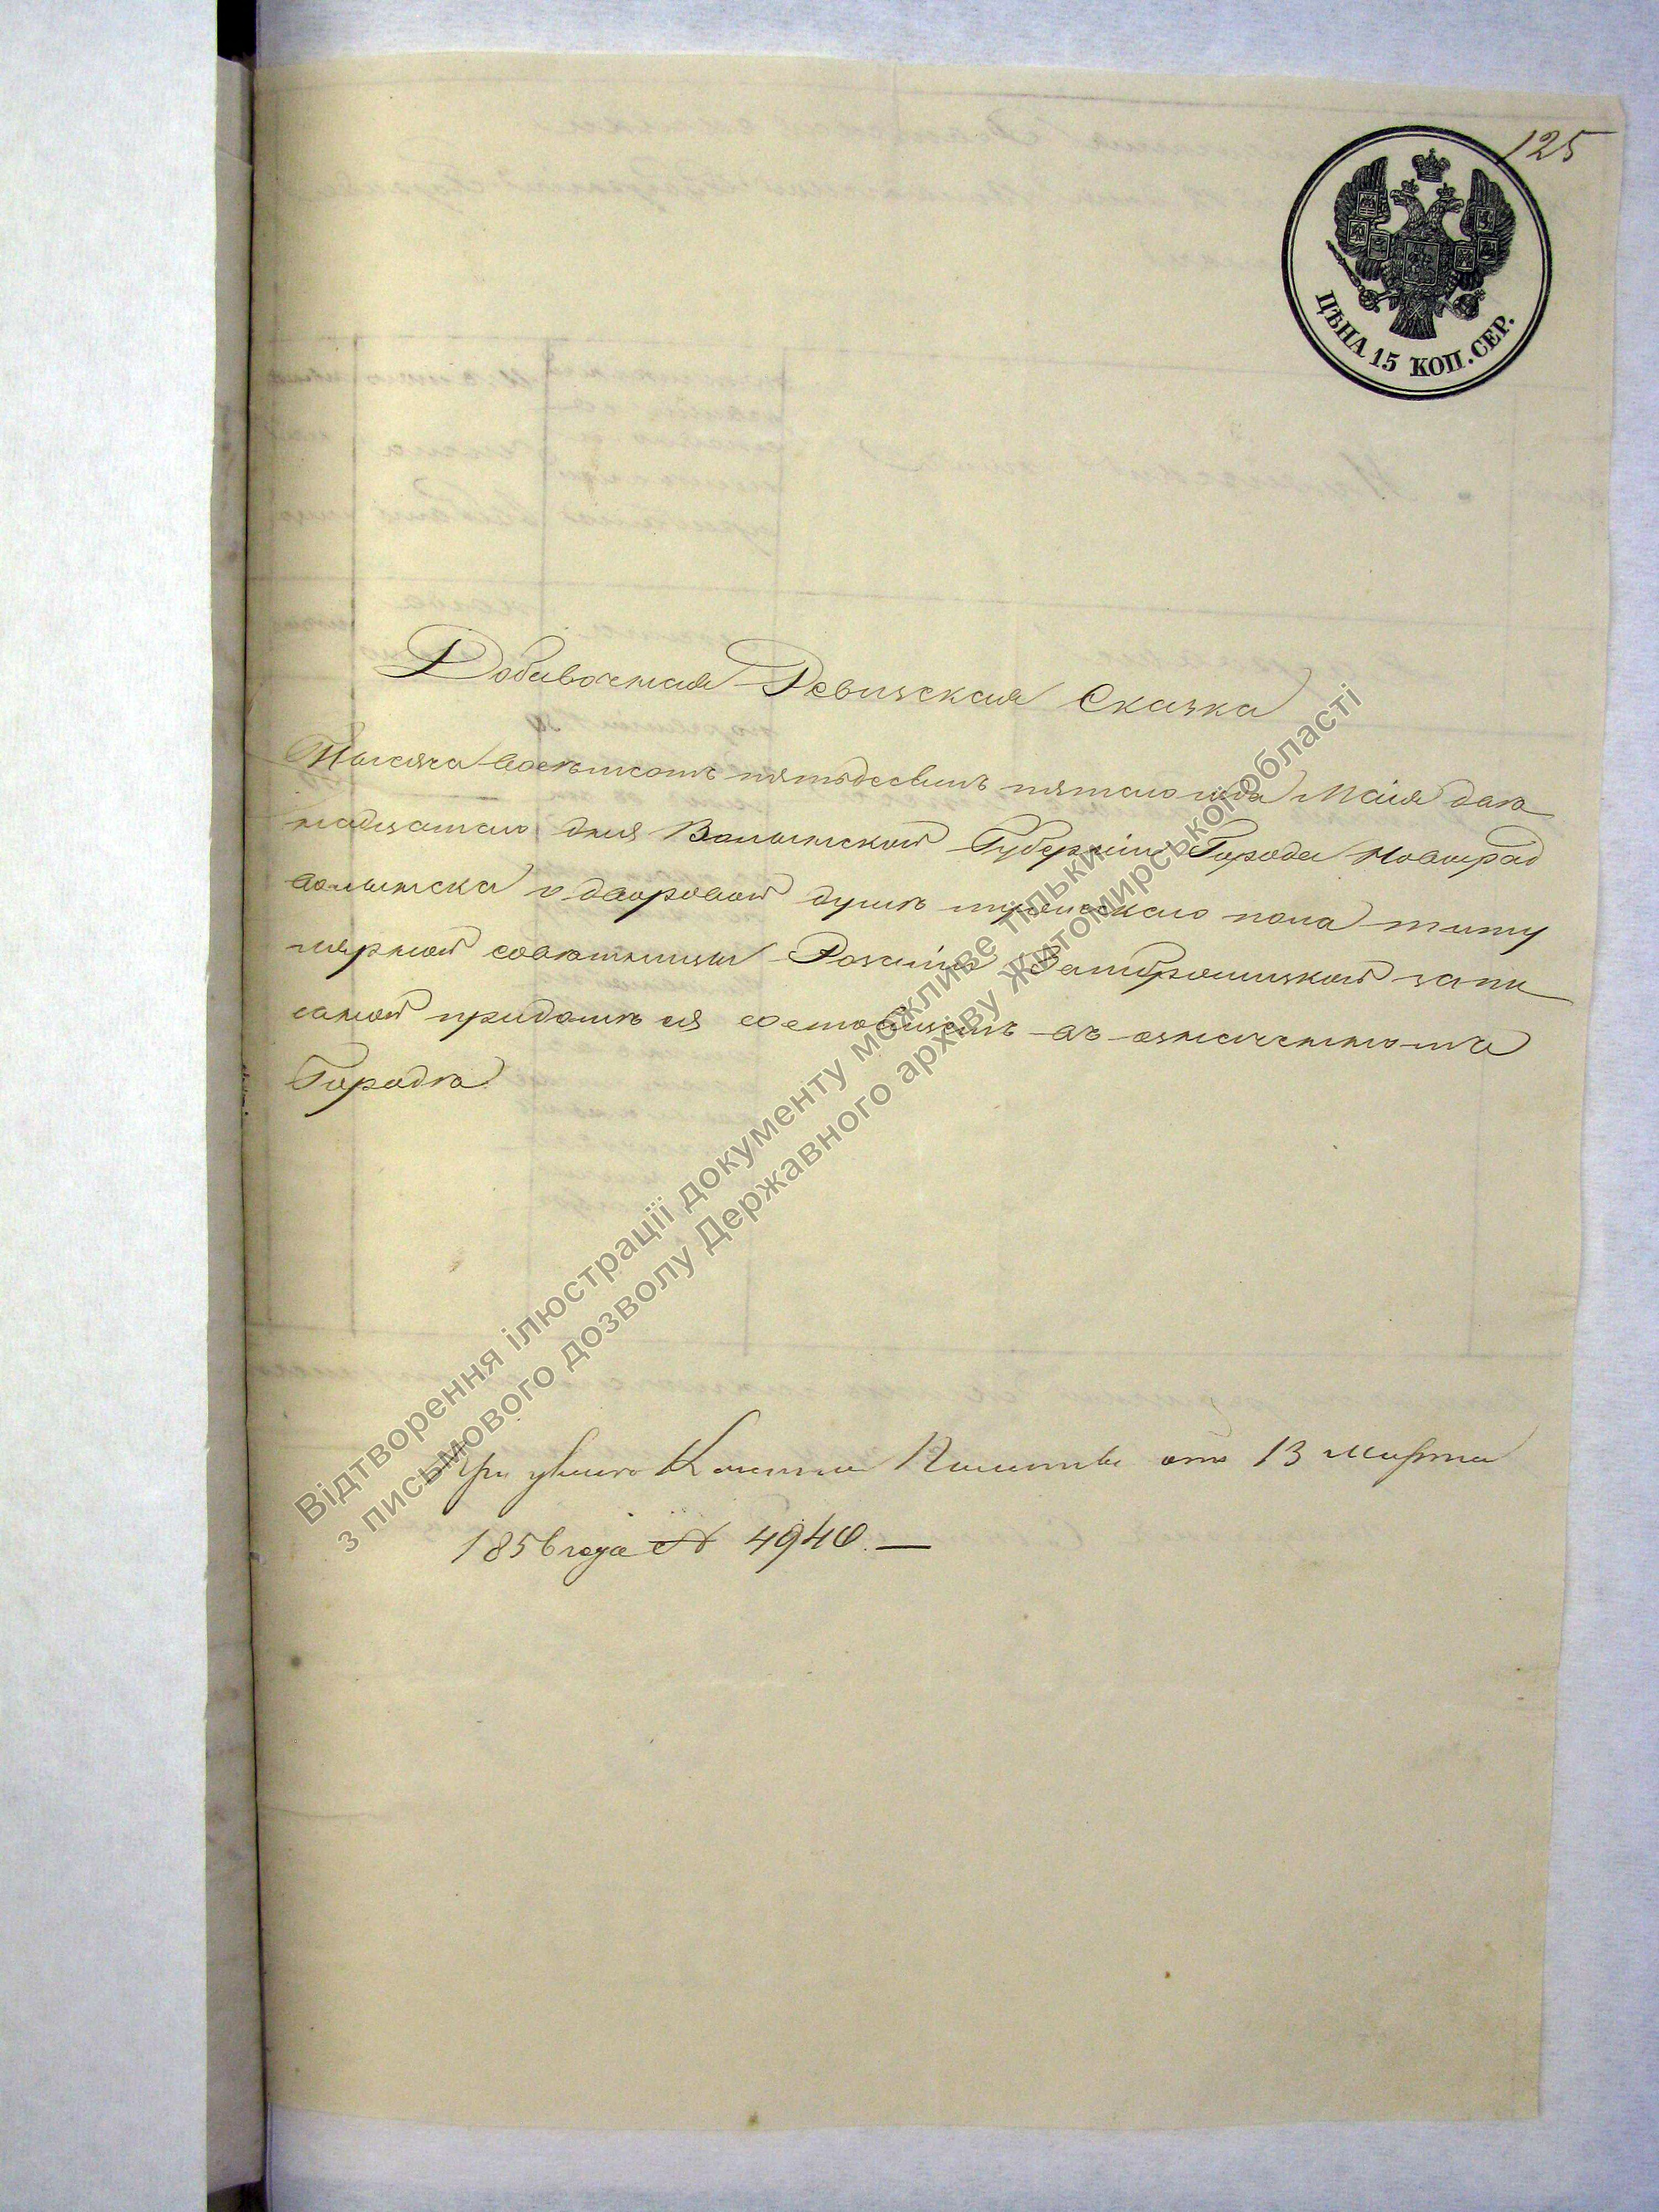 125
ЦѢНА 15 КОП. СЕР.
Добавочная Ревизская Сказка
Тысяча восемьсотъ пятьдесятъ пятаго года Маія два
надцатаго дня Волынской Губерніи Города Новоград
волынска о дворовой душѣ мужескаго пола титу
лярной совѣтницы Розаліи запи
санной
Города
При указѣ Казенной Палаты отъ 13 Марта
1856 года № 4940. —
Відтворення ілюстрації документу можливе тільки
з письмового дозволу Державного архіву Житомирської області